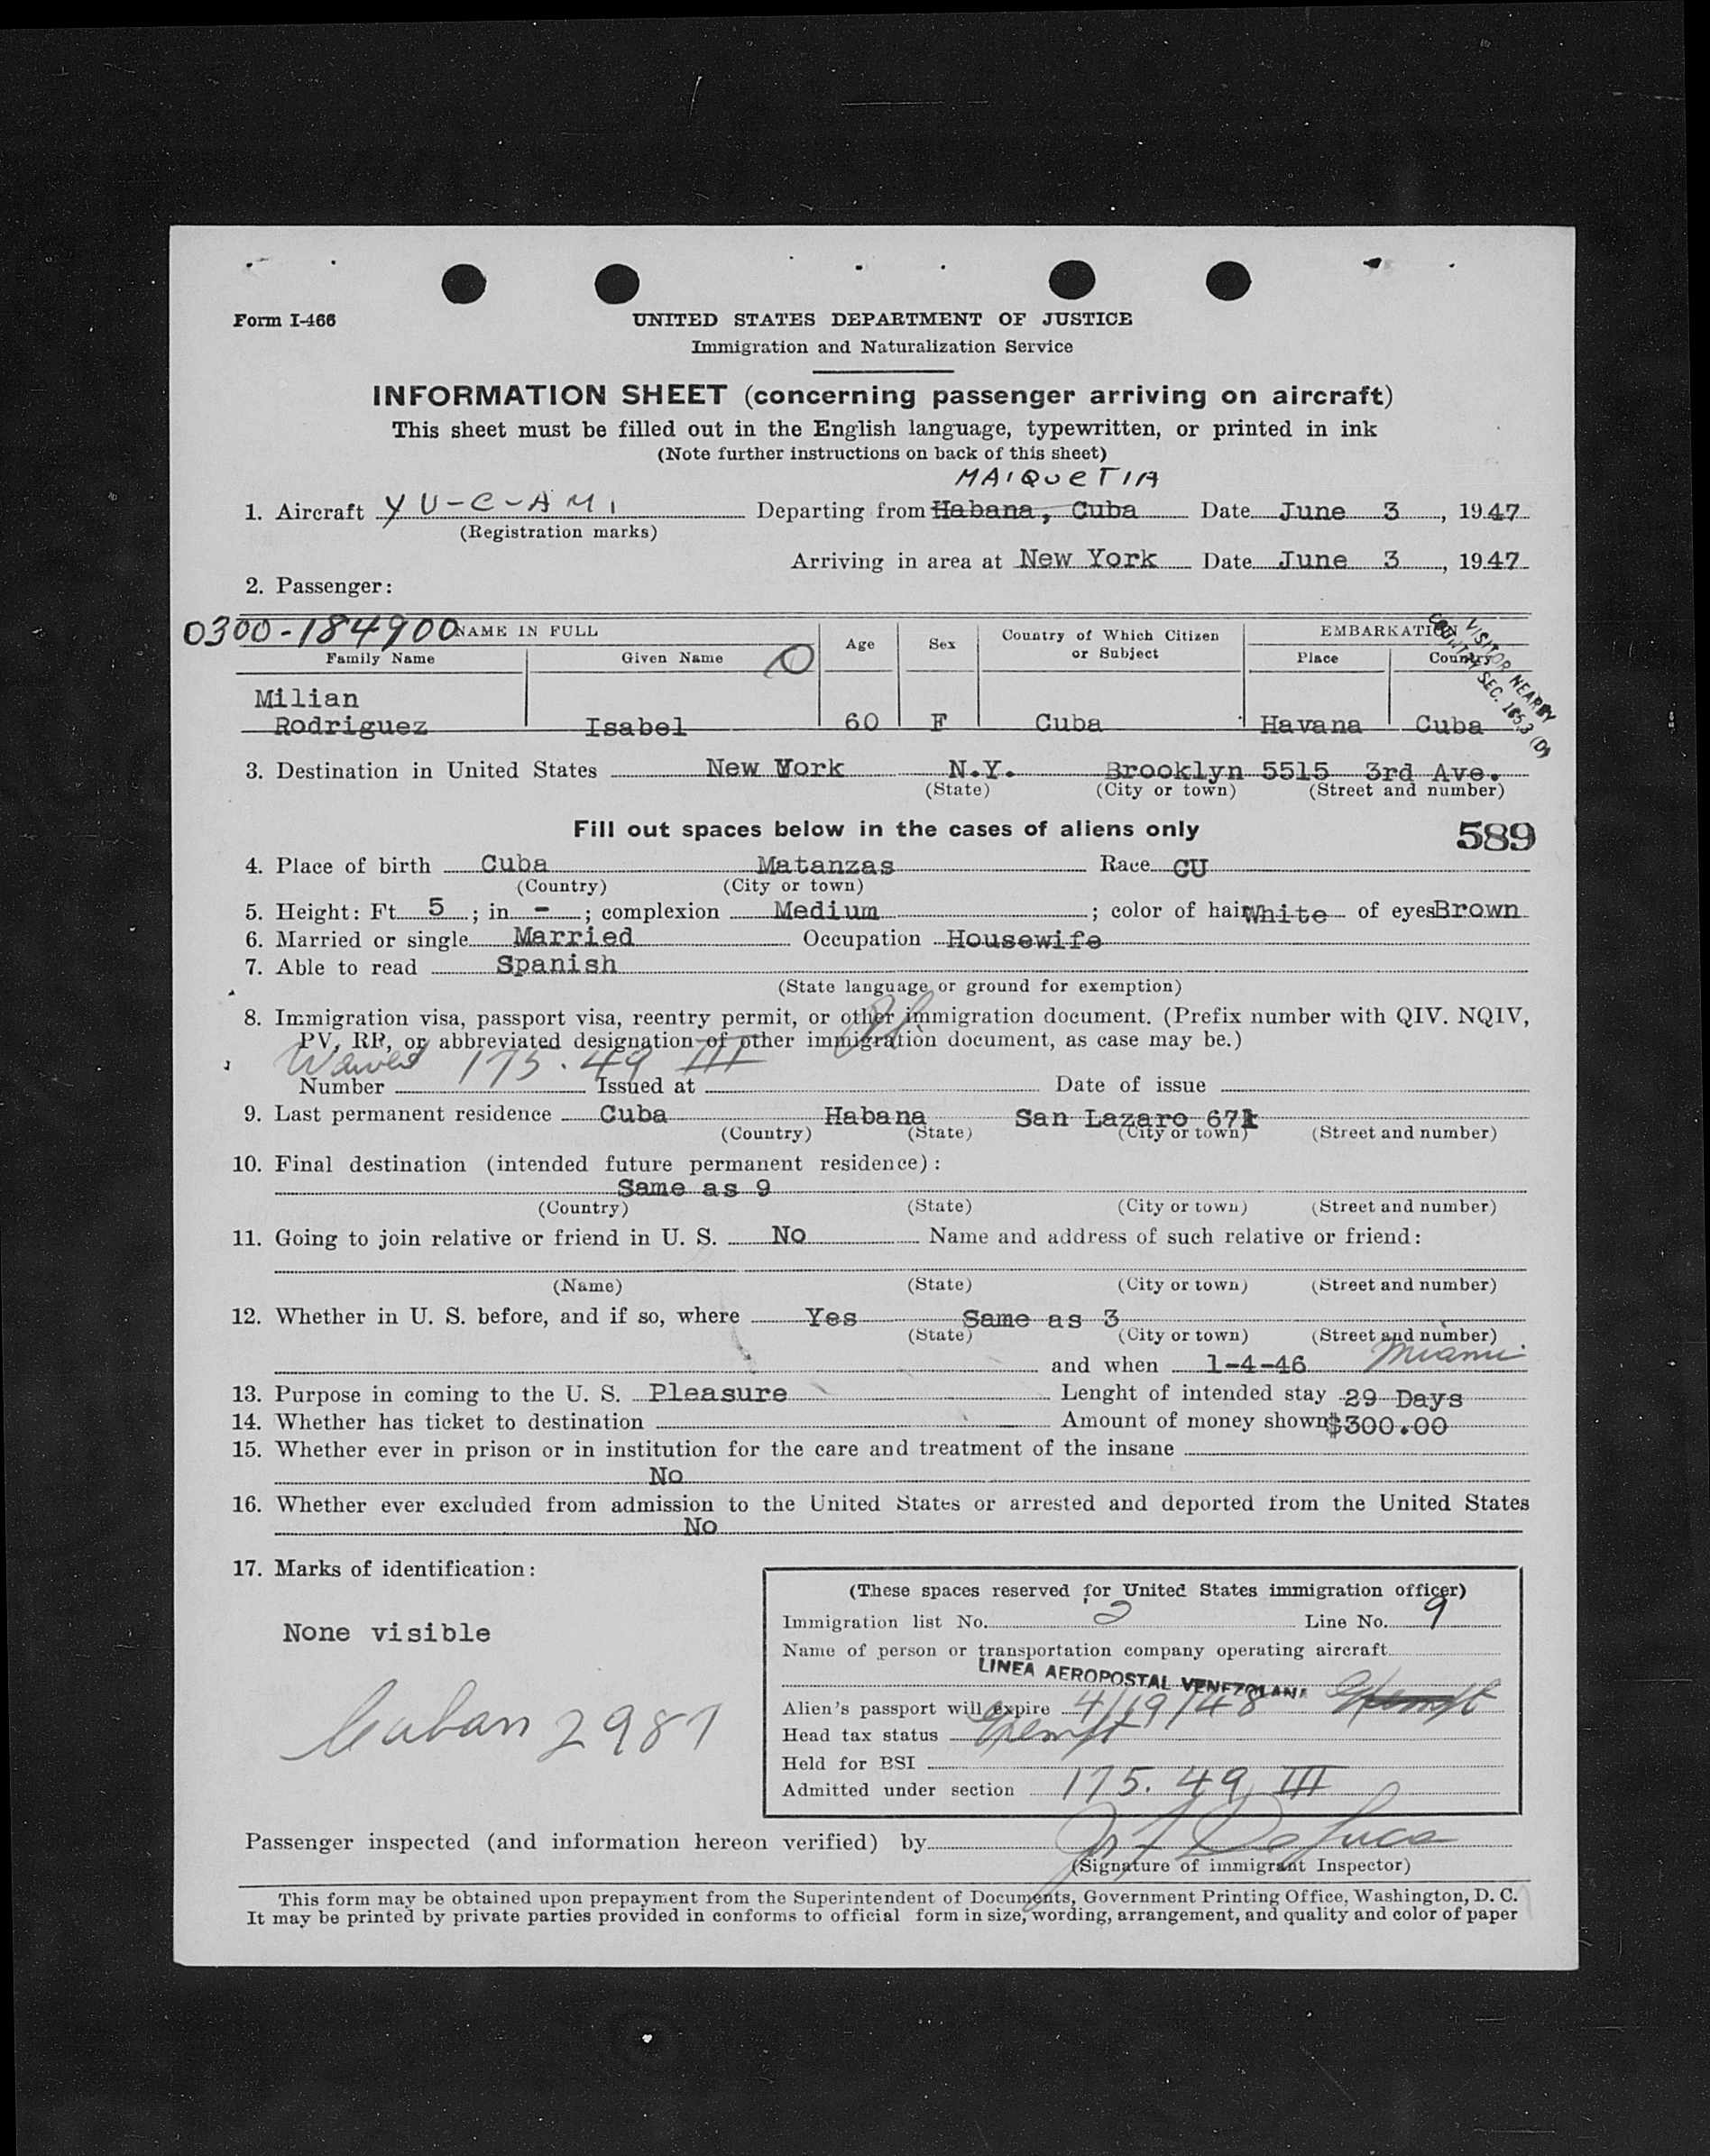 Form I-466
UNITED STATES DEPARTMENT OF JUSTICE
Immigration and Naturalization Service
INFORMATION SHEET (concerning passenger arriving on aircraft)
This sheet must be filled out in the English language, typewritten, or printed in ink
(Note further instructions on back of this sheet)
MAIQUETIA
1. Aircraft YU-C-AMI Departing from Habana, Cuba Date June 3, 1947
(Registration marks)
Arriving in area at New York Date June 3, 1947
2. Passenger:
0300-184900 NAME IN FULL Age Sex Country of Which Citizen or Subject EMBARKATION
Family Name Given Name Place Country
VISITOR NEARBY
COUNTRY SEC.
Milian
Rodriguez Isabel 60 F Cuba Havana Cuba
3. Destination in United States New York N.Y. Brooklyn 5515 3rd Ave.
(State) (City or town) (Street and number)
Fill out spaces below in the cases of aliens only
589
4. Place of birth Cuba Matanzas Race CU
(Country) (City or town)
5. Height: Ft. 5; in. -; complexion Medium; color of hair White of eyes Brown
6. Married or single Married Occupation Housewife
7. Able to read Spanish
(State language or ground for exemption)
8. Immigration visa, passport visa, reentry permit, or other immigration document. (Prefix number with QIV. NQIV,
PV, RP, or abbreviated designation of other immigration document, as case may be.)
Waived 175.49 III
Number Issued at Date of issue
9. Last permanent residence Cuba Habana San Lazaro 671
(Country) (State) (City or town) (Street and number)
10. Final destination (intended future permanent residence):
Same as 9
(Country) (State) (City or town) (Street and number)
11. Going to join relative or friend in U. S. No Name and address of such relative or friend:
(Name) (State) (City or town) (Street and number)
12. Whether in U. S. before, and if so, where Yes Same as 3
(State) (City or town) (Street and number)
and when 1-4-46 Miami
13. Purpose in coming to the U. S. Pleasure Lenght of intended stay 29 Days
14. Whether has ticket to destination Amount of money shown $300.00
15. Whether ever in prison or in institution for the care and treatment of the insane
No
16. Whether ever excluded from admission to the United States or arrested and deported from the United States
No
17. Marks of identification:
None visible
Cuban 2981
(These spaces reserved for United States immigration officer)
Immigration list No. 2 Line No. 9
Name of person or transportation company operating aircraft
LINEA AEROPOSTAL VENEZOLANA
Alien's passport will expire 4/19/48 Exempt
Head tax status Exempt
Held for BSI
Admitted under section 175.49 III
Passenger inspected (and information hereon verified) by
(Signature of immigrant Inspector)
This form may be obtained upon prepayment from the Superintendent of Documents, Government Printing Office, Washington, D. C.
It may be printed by private parties provided in conforms to official form in size, wording, arrangement, and quality and color of paper